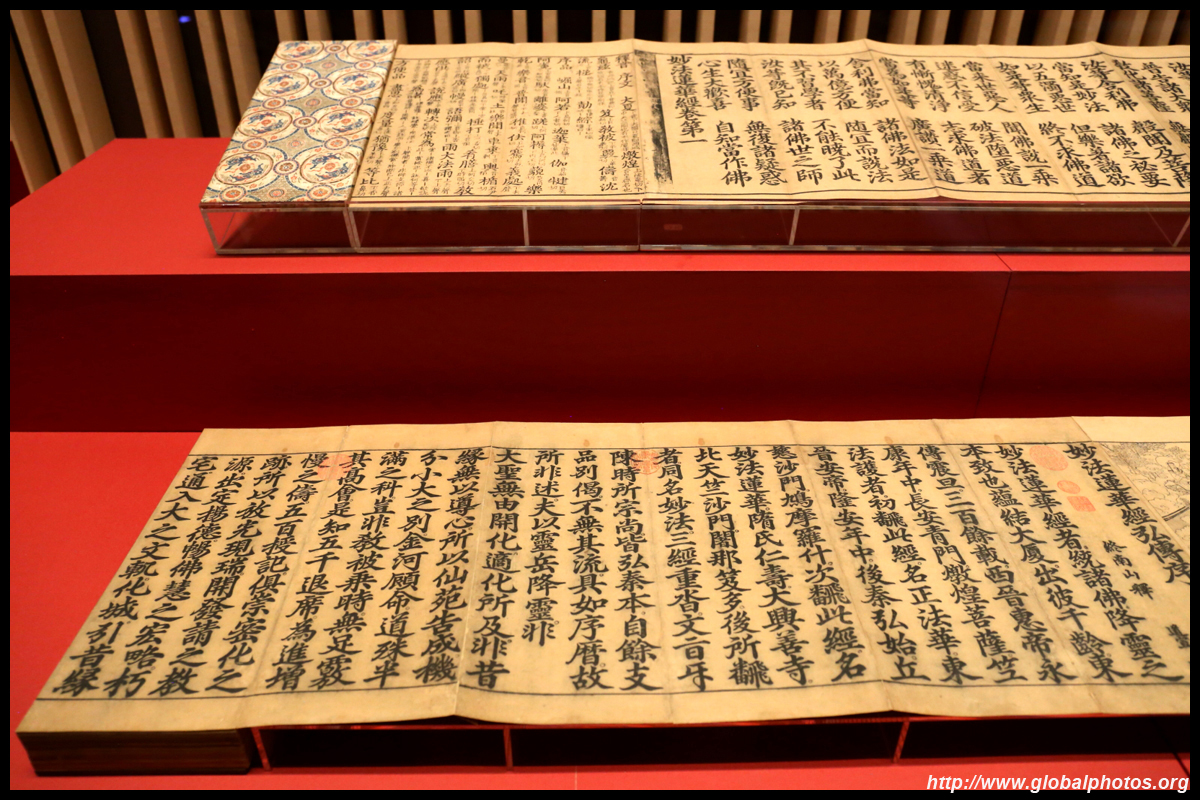 汝等舍利弗 聲聞及菩薩
當知是妙法 諸佛之秘要
以五濁惡世 但樂著諸欲
如是等眾生 終不求佛道
當來世惡人 聞佛說一乘
迷惑不信受 破法墮惡道
有慚愧清淨 志求佛道者
當為如是等 廣讚一乘道
舍利弗當知 諸佛法如是
以萬億方便 隨宜而說法
其不習學者 不能曉了此
汝等既已知 諸佛世之師
隨宜方便事 無復諸疑惑
心生大歡喜 自知當作佛
妙法蓮華經卷第一
妙法蓮華經弘傳序
終南山釋
妙法蓮華經者統諸佛降靈之
本致也蘊結大夏出彼千齡東
傳震旦三百餘載西晉惠帝永
康年中長安青門燉煌菩薩竺
法護者初飜此經名正法華東
晉安帝隆安年中後秦弘始丘
慈沙門鳩摩羅什次飜此經名
妙法蓮華隋氏仁壽大興善寺
北天竺沙門闍那笈多後所飜
者同名妙法三經重沓文旨互
陳時所宗尚皆弘秦本自餘支
品別偈不無其流具如序曆故
所非述夫以靈岳降靈非
大聖無由開化適化所及非昔
緣無以導心所以仙苑告成機
分小大之別金河顧命道殊半
滿之科豈非教被乘時無足覈
其高會是知五千退席為進增
慢之儔五百授記俱崇密化之
跡所以放光現瑞開發請之教
源出定揚德暢佛慧之宏略朽
宅通入大之文軌化城引昔緣
http://www.globalphotos.org